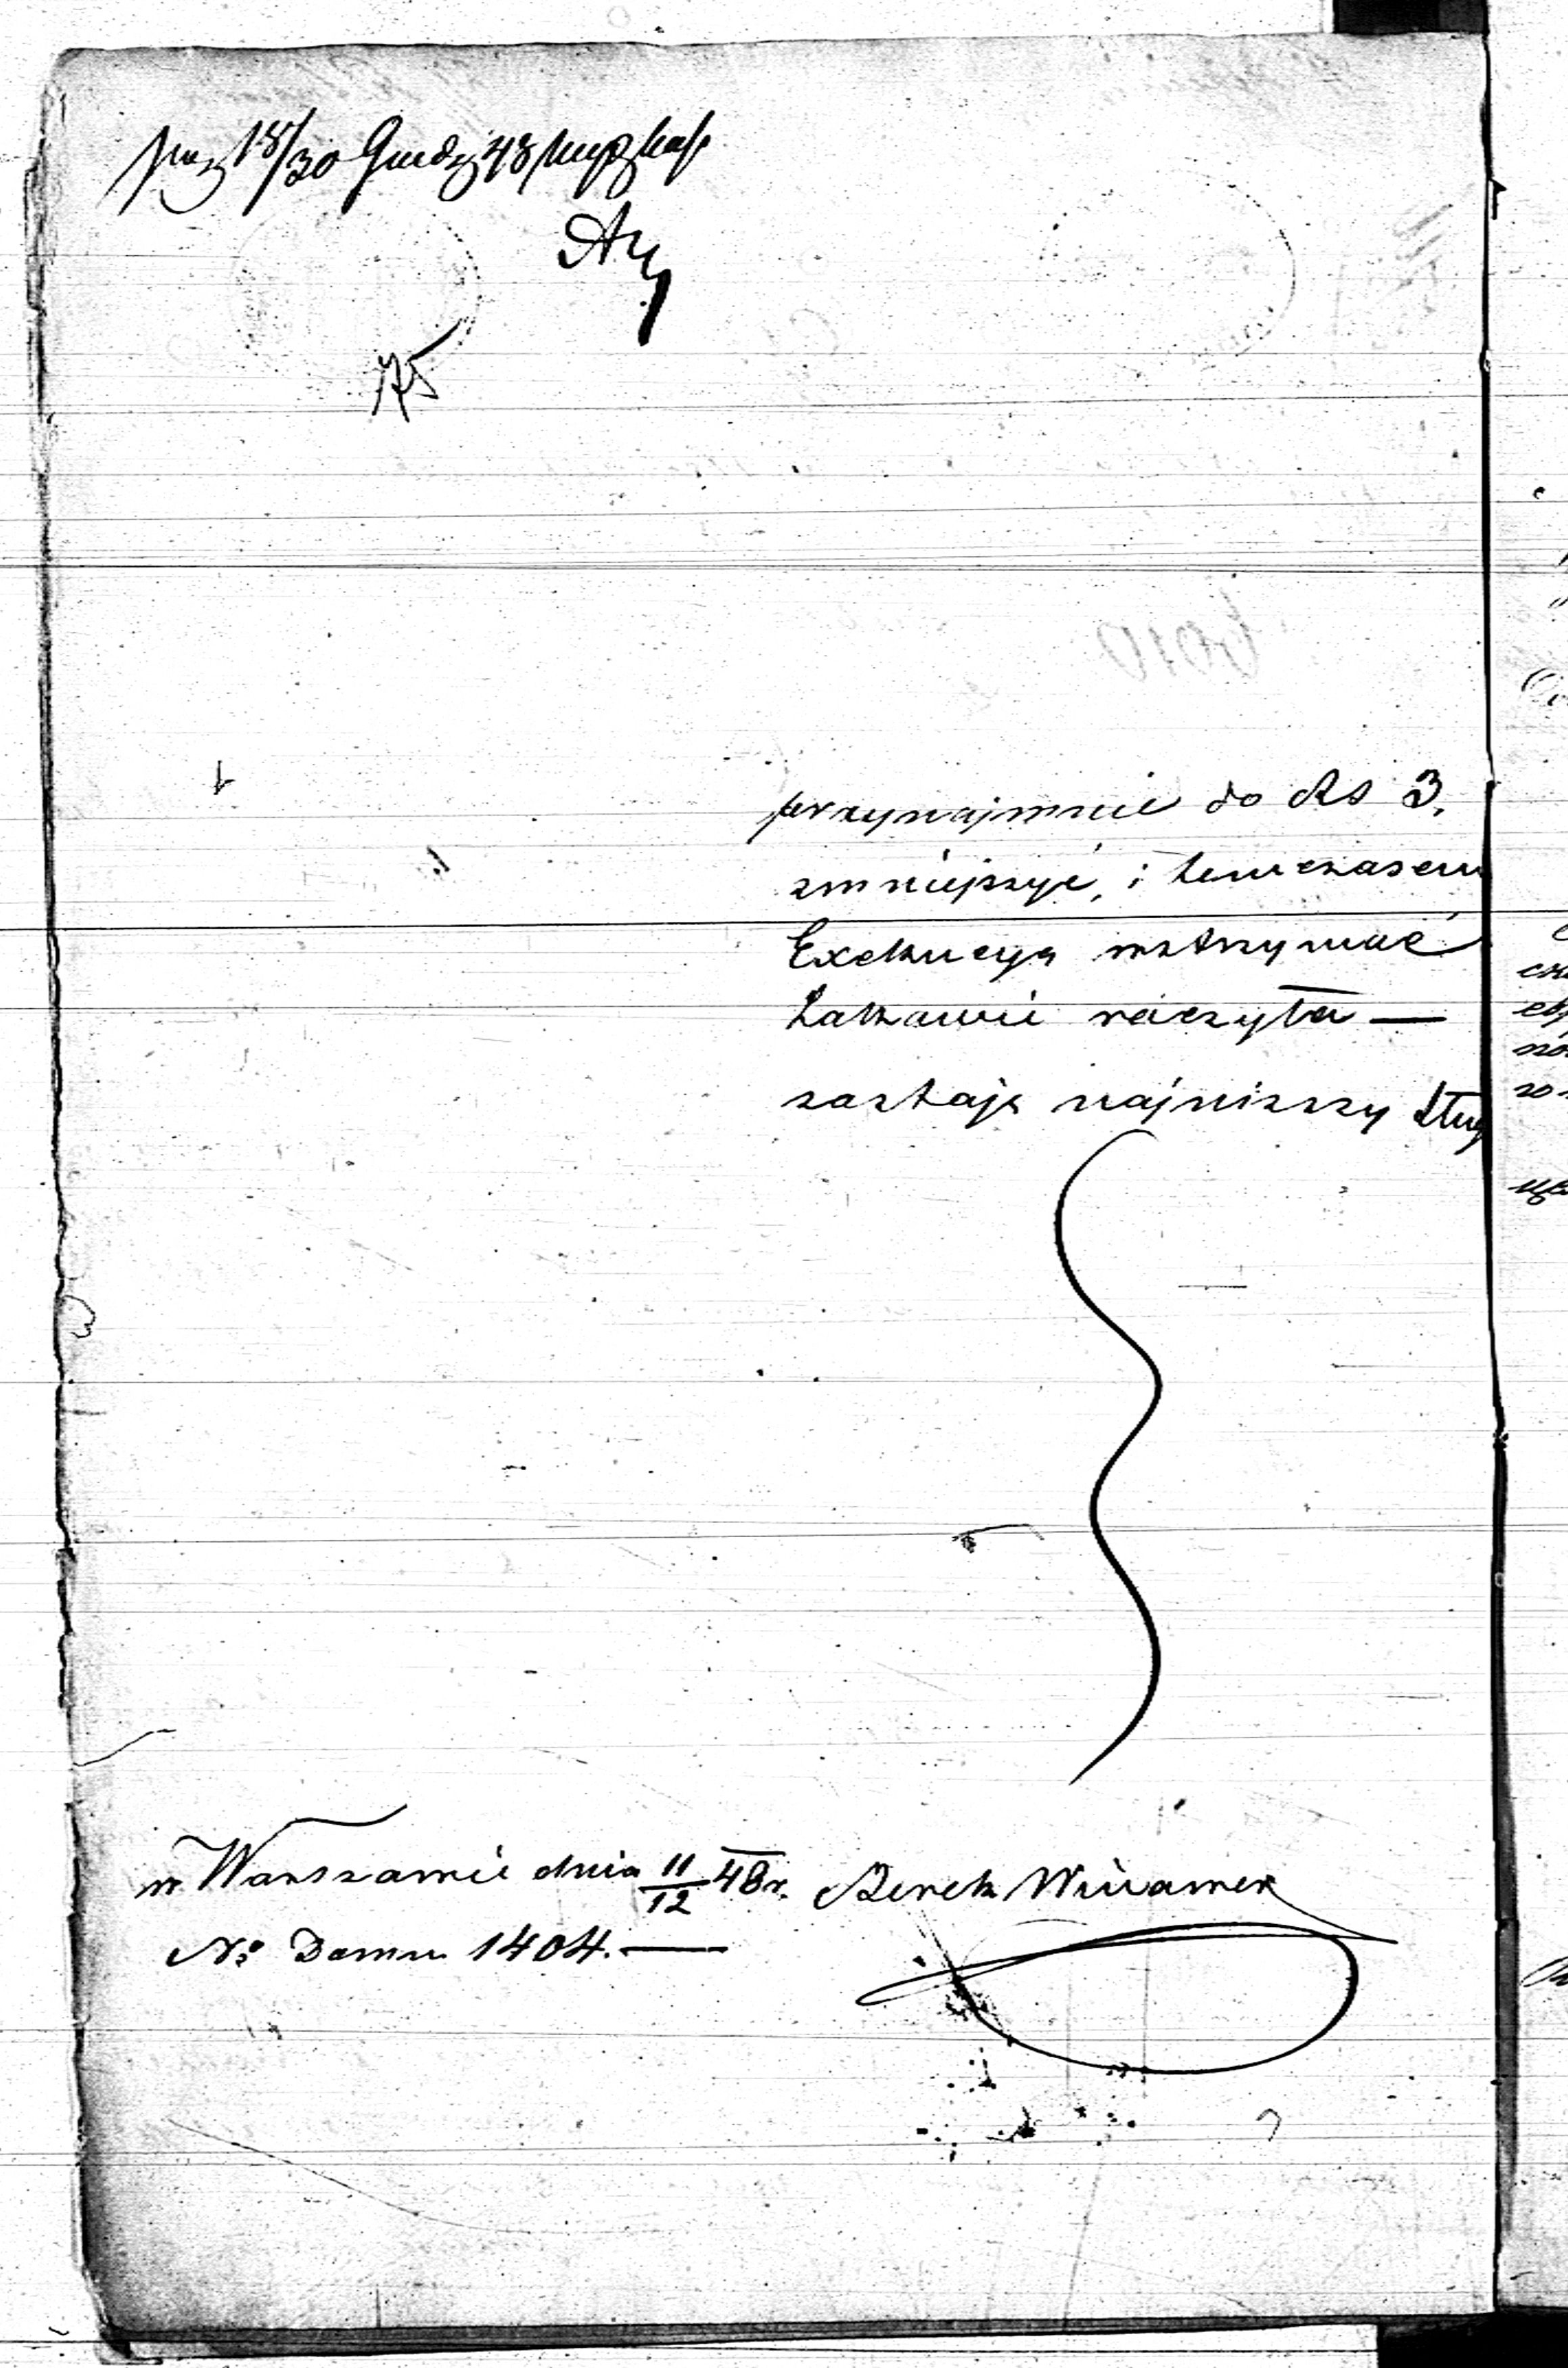 18/30 Grudz 48
75
przynajmnie do Rs 3.
zmniejszyć, i temczasem
Exekucyą wstrzymać
Łakawie raczyła —
zostaję najniższy sług
w Warszawie dnia 11/12 48 r. Berek Winawer
No Domu 1404. —